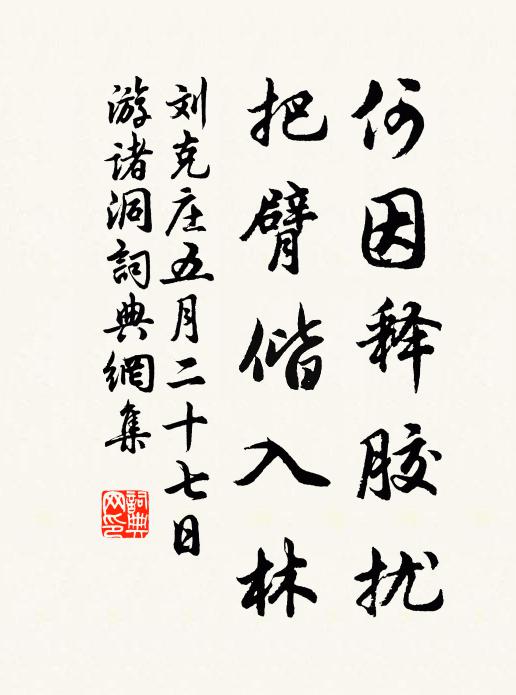 何因释胶扰
把臂偕入林
刘克庄五月二十七日
游诸洞詞典網集
詞典网印